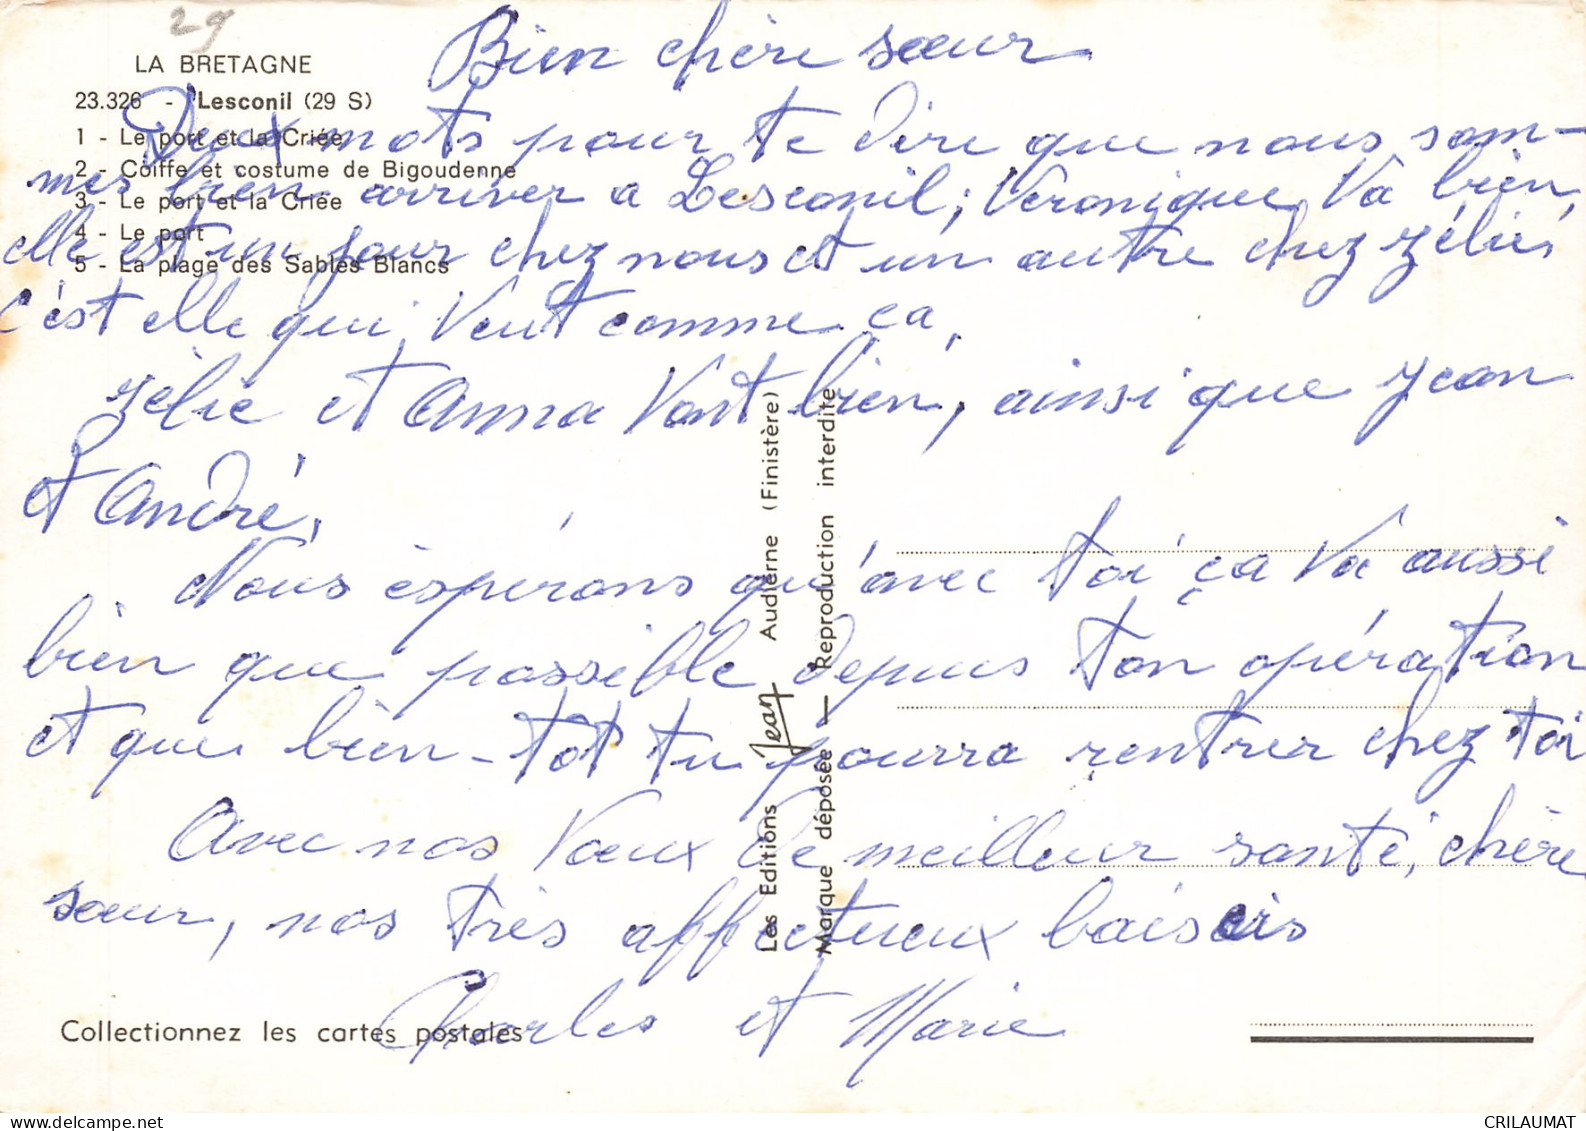 29
LA BRETAGNE
23.326 - Lesconil (29 S)
1 - Le port et la Criée
2 - Coiffe et costume de Bigoudenne
3 - Le port et la Criée
4 - Le port
5 - La plage des Sables Blancs
Bien chère sœur
Deux mots pour te dire que nous som-
mes bien arriver a Lesconil, Véronique va bien,
elle est un jour chez nous et un autre chez Zélie,
c'est elle qui veut comme ca,
Zélie et Anna vont bien, ainsi que Jean
et André,
Nous éspérons qu'avec toi ça va aussi
bien que possible depuis ton opération
et que bien-tôt tu pourra rentrer chez toi
Avec nos vœux de meilleur santé, chère
sœur, nos très affectueux baisers
Charles et Marie
Les Editions Jean Audierne (Finistère)
Marque déposée — Reproduction interdite
Collectionnez les cartes postales
CRILAUMAT